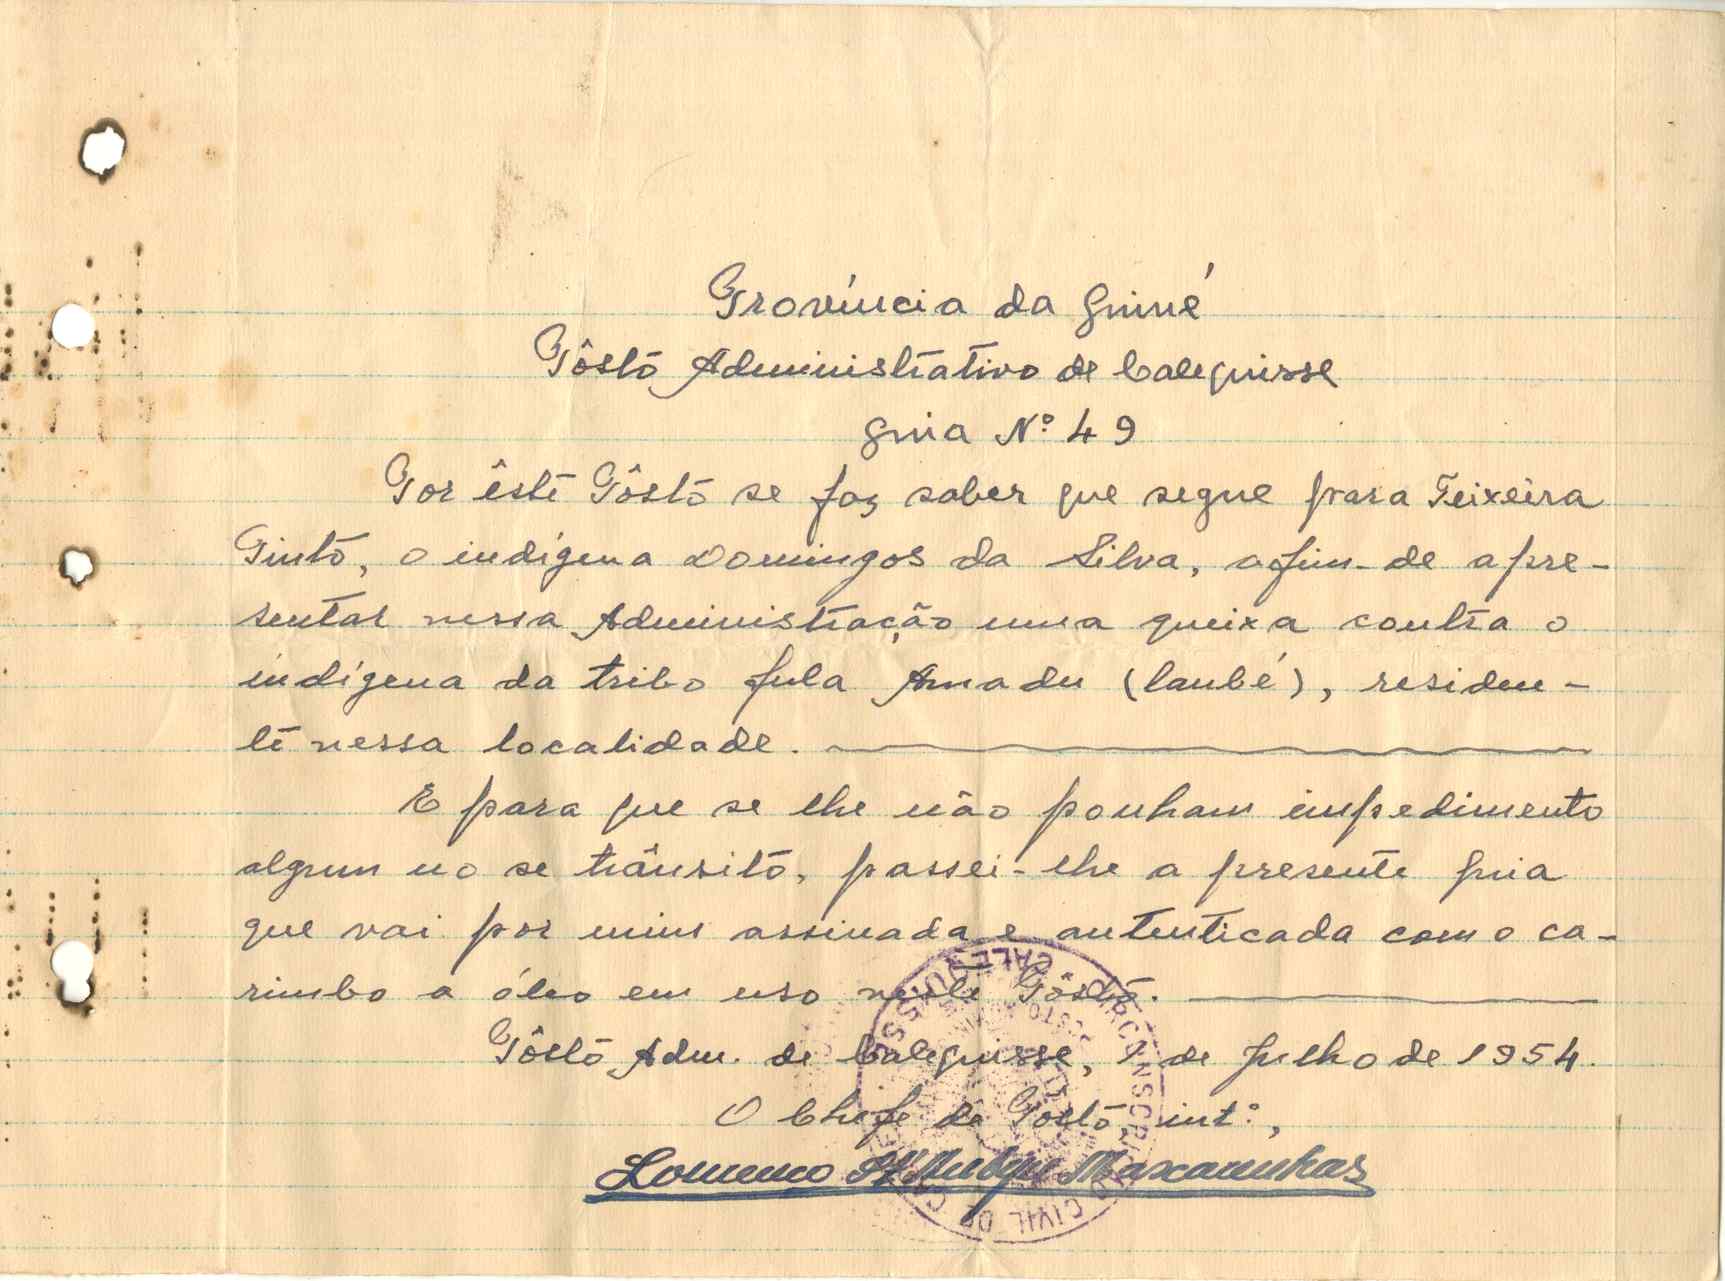 Província da Guiné
Pôsto Administrativo de Calequisse
Guia Nº 49
Por êste Pôsto se faz saber que segue para Teixeira
Pinto, o indígena Domingos da Silva, afim-de apre-
sentar nessa Administração uma queixa contra o
indígena da tribo fula Amadu (laubé), residen-
te nessa localidade.
E para que se lhe não ponham impedimento
algum no se trânsito, passei-lhe a presente guia
que vai por mim assinada e autenticada com o ca-
rimbo a óleo em uso neste Pôsto.
Pôsto Adm. de Calequisse, 1 de Julho de 1954.
O Chefe de Posto, intº,
Mascarenhas
CIRCUNSCRIÇÃO CIVIL DE
POSTO
CALEQUISSE